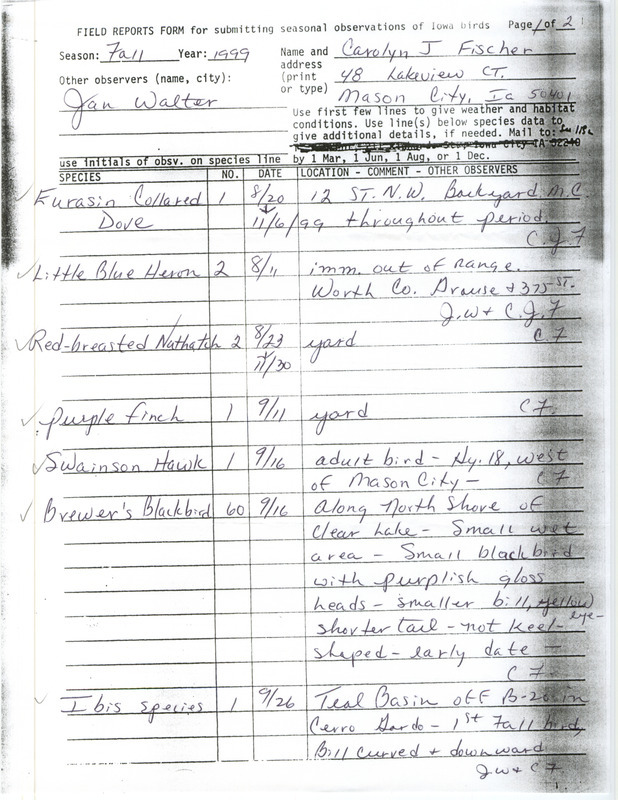 FIELD REPORTS FORM for submitting seasonal observations of Iowa birds Page 1 of 2
Season: Fall Year: 1999 Name and Carolyn J Fischer
address
(print 48 Lakeview CT.
or type) Mason City, Ia 50401
Other observers (name, city):
Jan Walter
Use first few lines to give weather and habitat
conditions. Use line(s) below species data to
give additional details, if needed. Mail to:
Iowa City IA 52240
use initials of obsv. on species line by 1 Mar, 1 Jun, 1 Aug, or 1 Dec.
SPECIES NO. DATE LOCATION - COMMENT - OTHER OBSERVERS
✓ Eurasin Collared 1 8/20 12 ST. N.W. Backyard M.C.
Dove ↓ 11/6/99 throughout period.
C.J.F
✓ Little Blue Heron 2 8/11 imm. out of range.
Worth Co. Grouse + 375 ST.
J.W + C.J.F
✓ Red-breasted Nuthatch 2 8/23 yard C.F
11/30
✓ purple finch 1 9/11 yard C F.
✓ Swainson Hawk 1 9/16 adult bird - Hy. 18, west
of Mason City - C F
✓ Brewer's Blackbird 60 9/16 along North Shore of
Clear Lake - Small wet
area - Small blackbird
with purplish gloss
heads - smaller bill, yellow
eye-
shorter tail - not keel-
shaped - early date -
C F
✓ Ibis species 1 9/26 Teal Basin off B-20 in
Cerro Gordo - 1st Fall bird,
Bill curved + downward
JW + C F